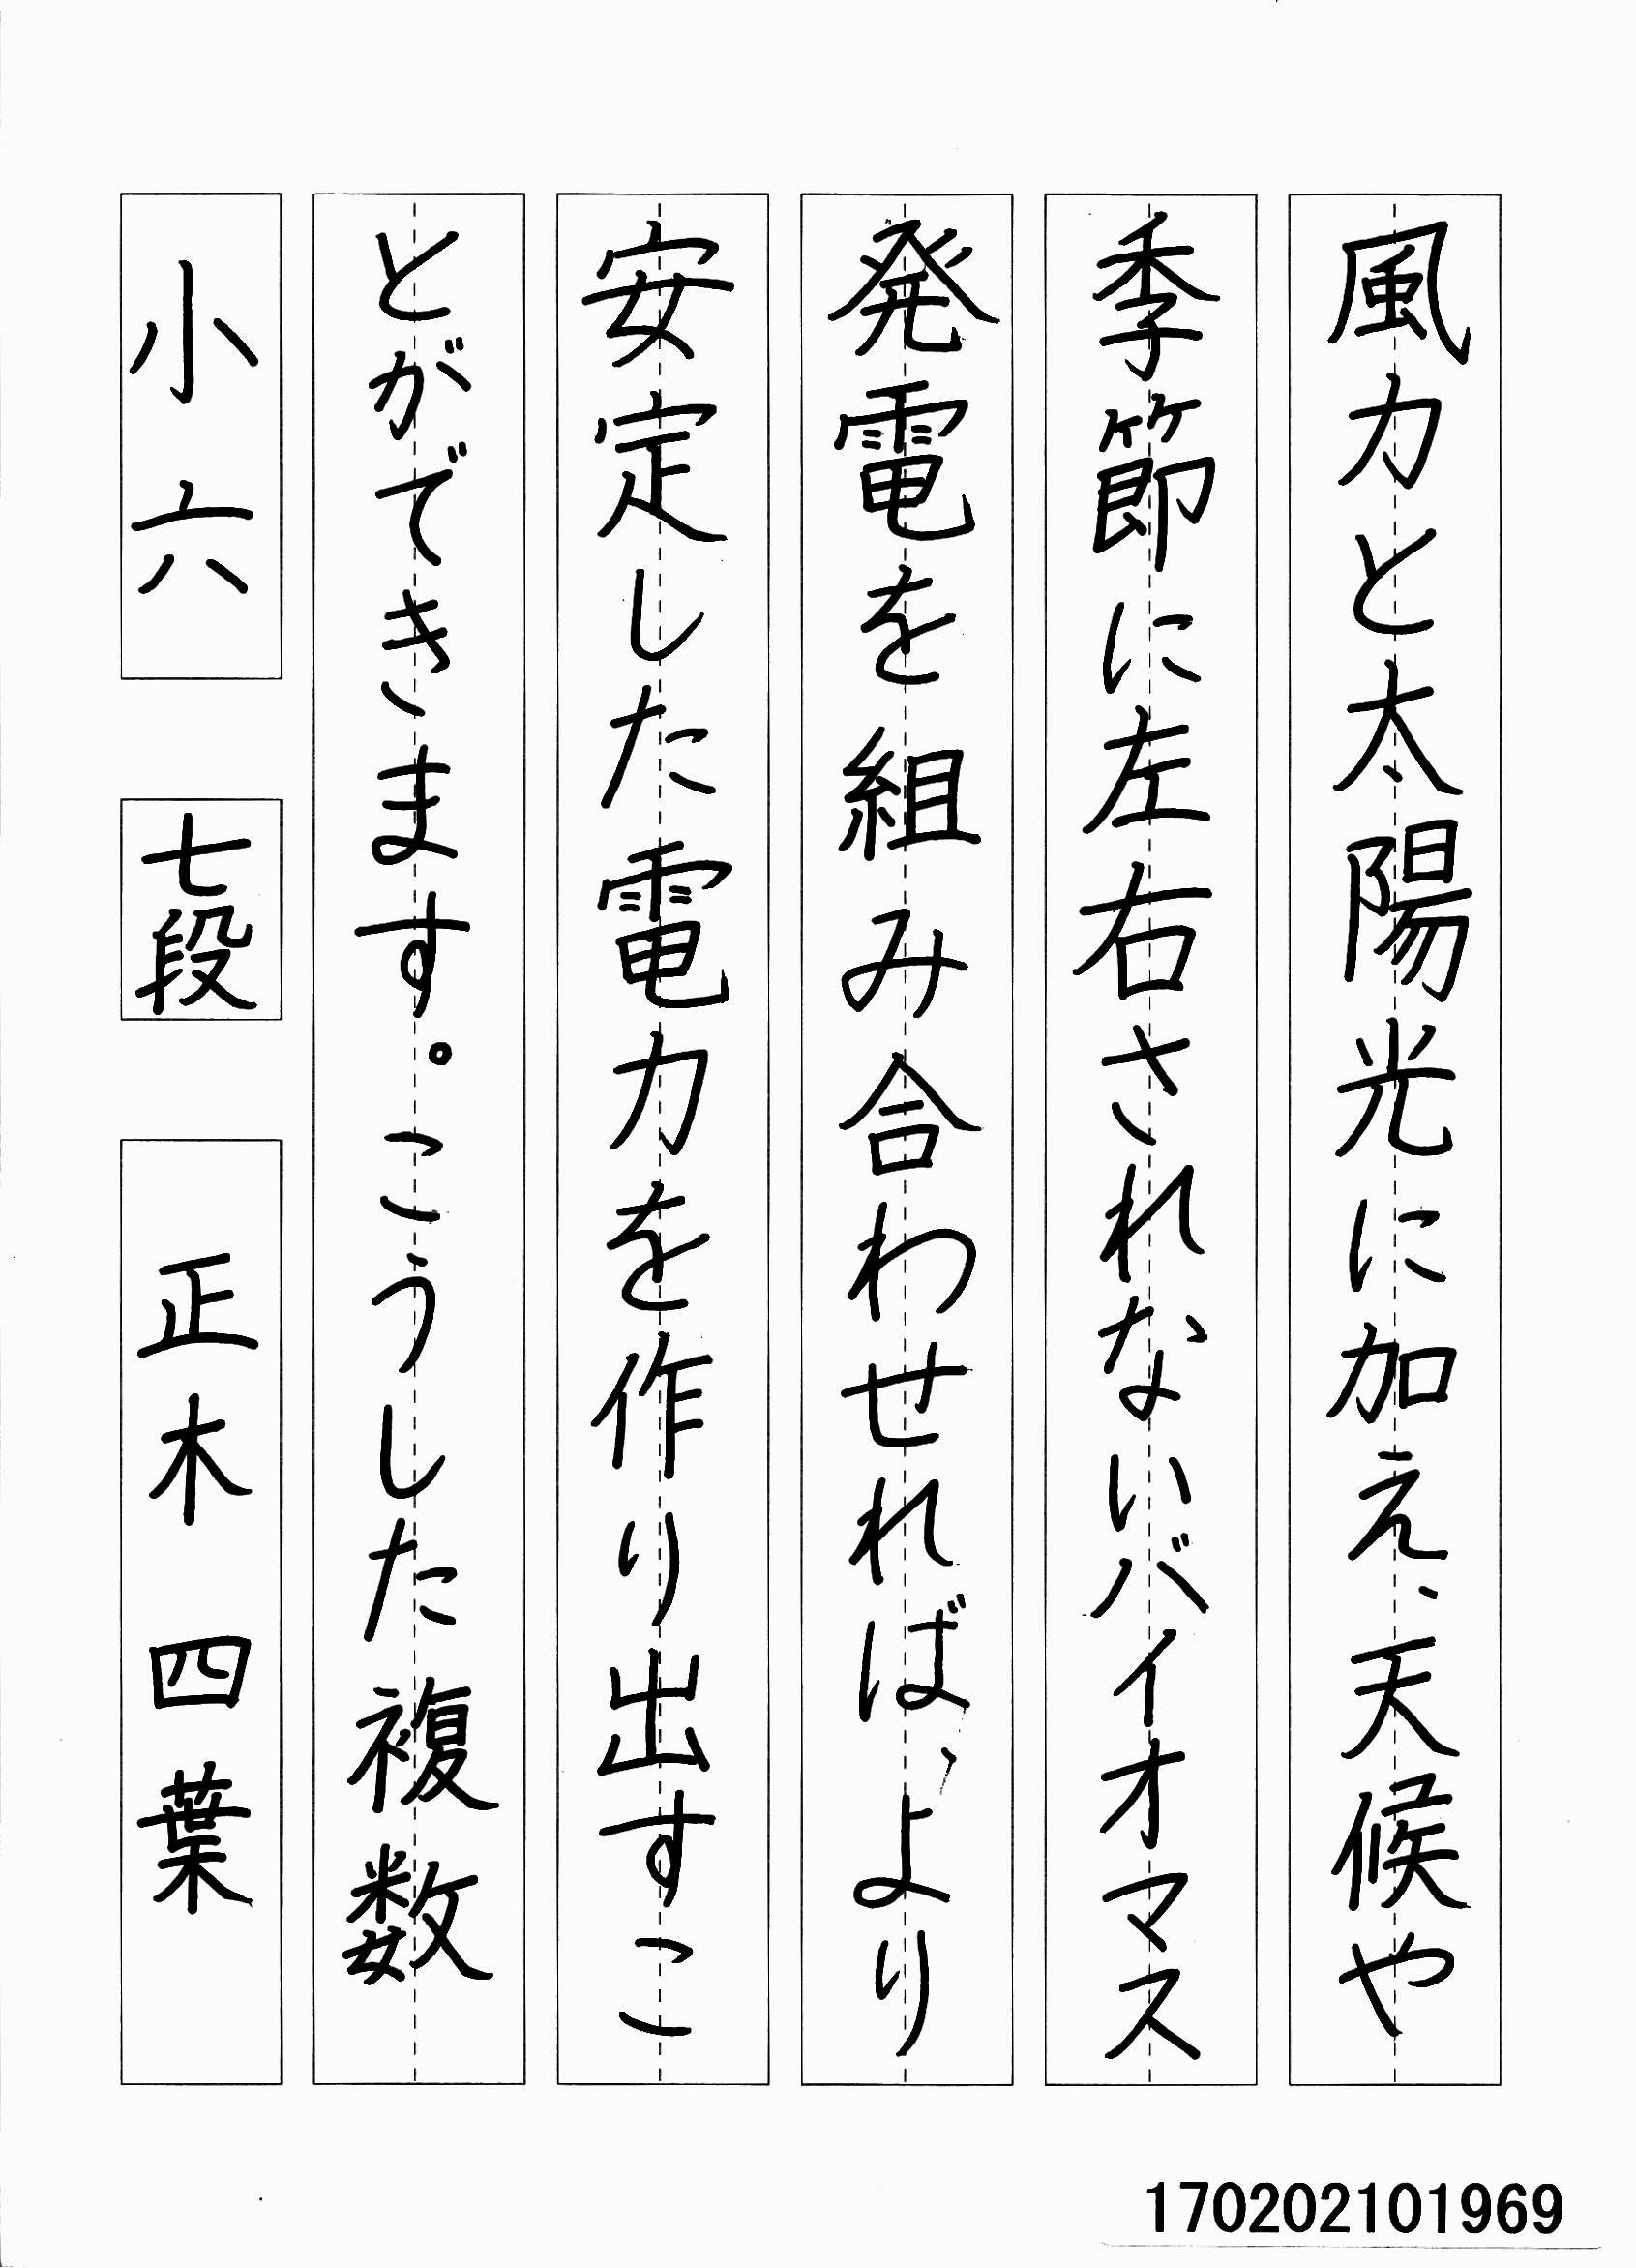 風力と太陽光に加え、天候や
季節に左右されないバイオマス
発電を組み合わせれば、より
安定した電力を作り出すこ
とができます。こうした複数
小六 七段 正木 四葉
170202101969